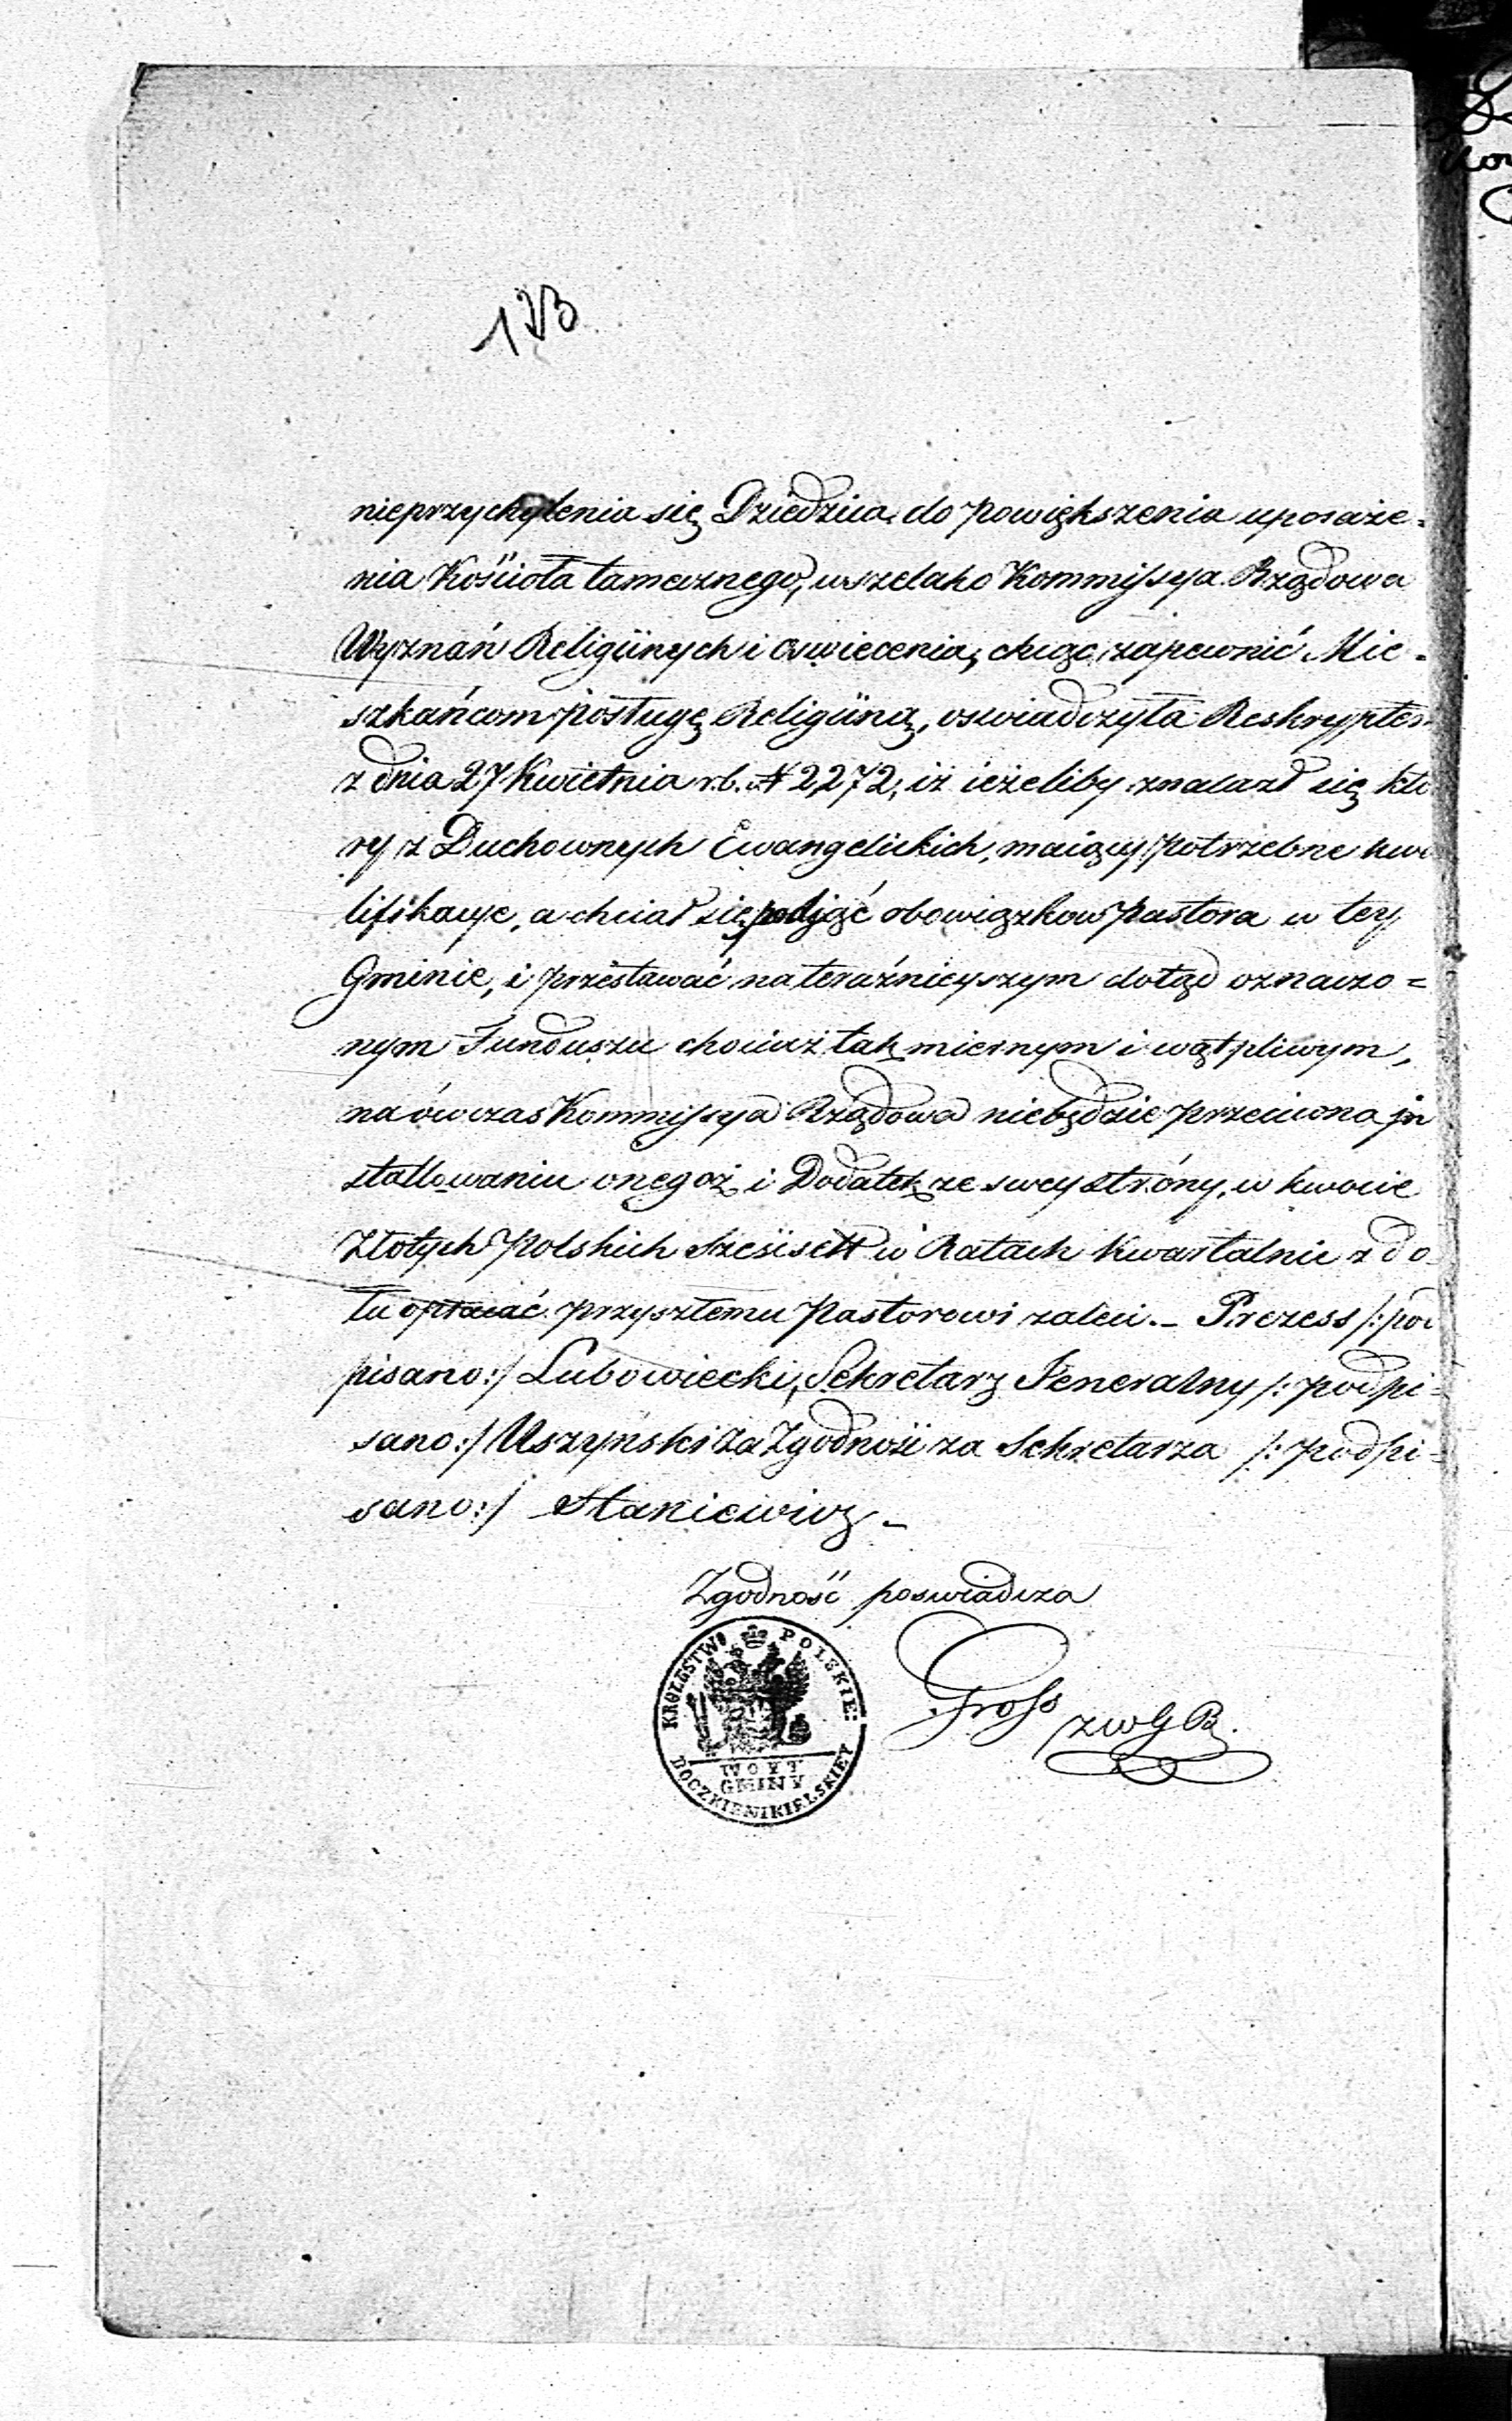 173
nieprzychylenia się Dziedzica do powiększenia uposaże=
nia Kościoła tamecznego, wszelako Kommissya Rządowa
Wyznań Religiinych i Oswiecenia, chcąc zapewnić Mie=
szkańcom posługę Religiiną, oswiadczyła Reskryptem
z dnia 27 Kwietnia r.b. N 2,272, iż ieżeliby znalazł się któ
ry z Duchownych Ewangelickich, maiący potrzebne kwa
lifikacye, a chciał się podjąć obowiązkow Pastora w tey
Gminie, i przestawać na teraźnieyszym dotąd oznaczo=
nym Funduszu chociaż tak miernym i wątpliwym,
na ówczas Kommissya Rządowa niebędzie przeciwna in
stallowaniu onegoż i Dodatek ze swey stróny, w kwocie
Złotych Polskich Sześćsett w Ratach Kwartalnie z do
łu opłacać przyszłemu Pastorowi zaleci. – Prezess /: pod
pisano :/ Lubowiecki, Sekretarz Jeneralny /: podpi=
sano :/ Uszyński Za Zgodność za Sekretarza /: podpi=
sano :/ Staniewicz –
Zgodność poswiadcza
KRÓLESTWO POLSKIE:
WOYT
GMINY
Gross zwGB.